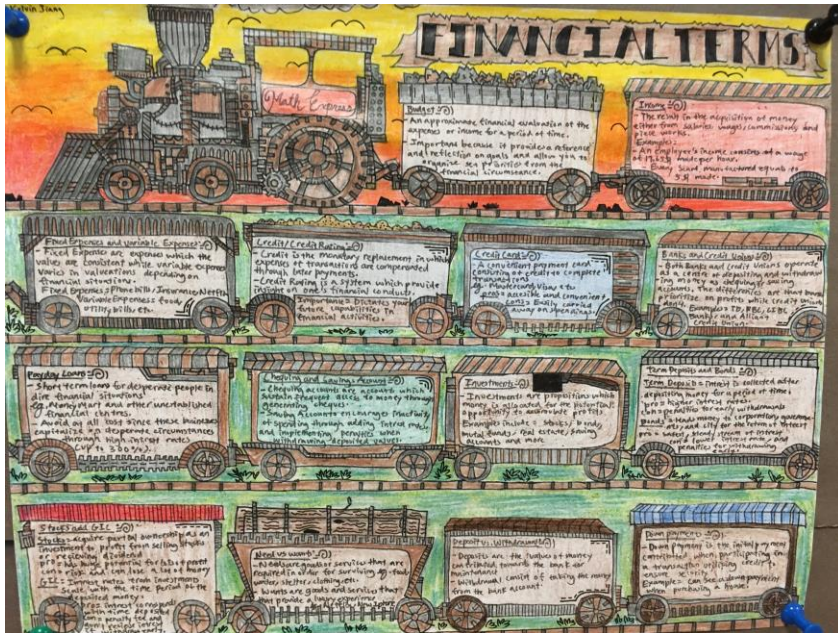 Kelvin Jiang
FINANCIAL TERMS
Math Express
Budget
- An approximate financial evaluation of the
expenses or income for a period of time.
- Important because it provides a reference
and reflection on goals and allow you to
organize priorities from the
financial circumstance.
Income
- The result in the acquisition of money
either from salaries, wages, commissions and
piece works.
Examples:
- An employee's income consists of a wage
made per hour.
- Every scarf manufactured equals to
5$ made.
Fixed Expenses and Variable Expenses
- Fixed Expenses are expenses which the
values are consistent while variable expenses
varies in valuations depending on
financial situations.
Fixed Expenses: Phone bills, Insurance, Netflix
Variable Expenses: food
utility bills, etc.
Credit/Credit Rating
- Credit is the monetary replacement in which
expenses of transactions are compensated
through later payments
- Credit Rating is a system which provide
insight on one's financial conducts.
Importance: Dictates your
future capabilities in
financial activities.
Credit Cards
- A convenient payment card
consisting of credit to complete
transactions
eg. Mastercard, Visa, etc
pros: accessible and convenient
cons: Easily carried
away on spendings.
Banks and Credit Unions
- Both Banks and Credit Unions operate
as a centre of depositing and withdraw-
ing money as chequing/saving
accounts. The differences are that banks
prioritize on profits while credit unions
Examples: TD, RBC, CIBC
Banks and Alliant
Credit Union.
Payday Loans
- Short term loans for desperate people in
dire financial situations
eg. Money Mart and other unestablished
financial centres.
- Avoid at all cost since these businesses
capitalize on desperate circumstances
through high interest rates
(up to 300%).
Chequing and Savings Account
- Chequing accounts are accounts which
sustain frequent access to money through
generating cheques.
- Saving Accounts encourages inactivity
of spending through adding interest rates,
and implementing penalties when
withdrawing deposited values.
Investments
- Investments are propositions which
money is allocated for the potential
opportunity to accumulate profits.
Examples include: stocks, bonds,
mutual bonds, real estate, saving
accounts and more
Term Deposits and Bonds
Term Deposits: interest is collected after
depositing money for a period of time.
pros: higher interest rates
cons: penalties for early withdrawals
Bonds: lends money to corporations, governments
for the return of interest
pros: safest, steady stream of interest
cons: lower interest rates, and
penalties for withdrawing
early.
Stocks and GIC
Stocks: acquire partial ownership as an
investment to profit from selling stocks
or receiving dividend
pros: has huge potential for lots of profit
cons: risky and can lose lots of money
GIC: Interest rates from investments
scale with the time period of the
invested money
Need vs Wants
- Needs are goods or services that are
required in order for surviving eg. food,
water, shelter, clothing, etc.
- Wants are goods and services that
that provide a luxury
Deposit vs Withdrawal
- Deposits are the values of money
contributed towards the bank for
maintenance
- Withdrawal consist of taking the money
from the bank account.
Down payments
- Down payment is the initial payment
when participating in
a transaction utilizing credit
Examples: can see down payment
when purchasing a house